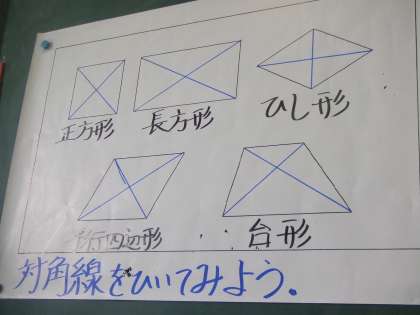 正方形
長方形
ひし形
行四辺形
台形
対角線をひいてみよう。